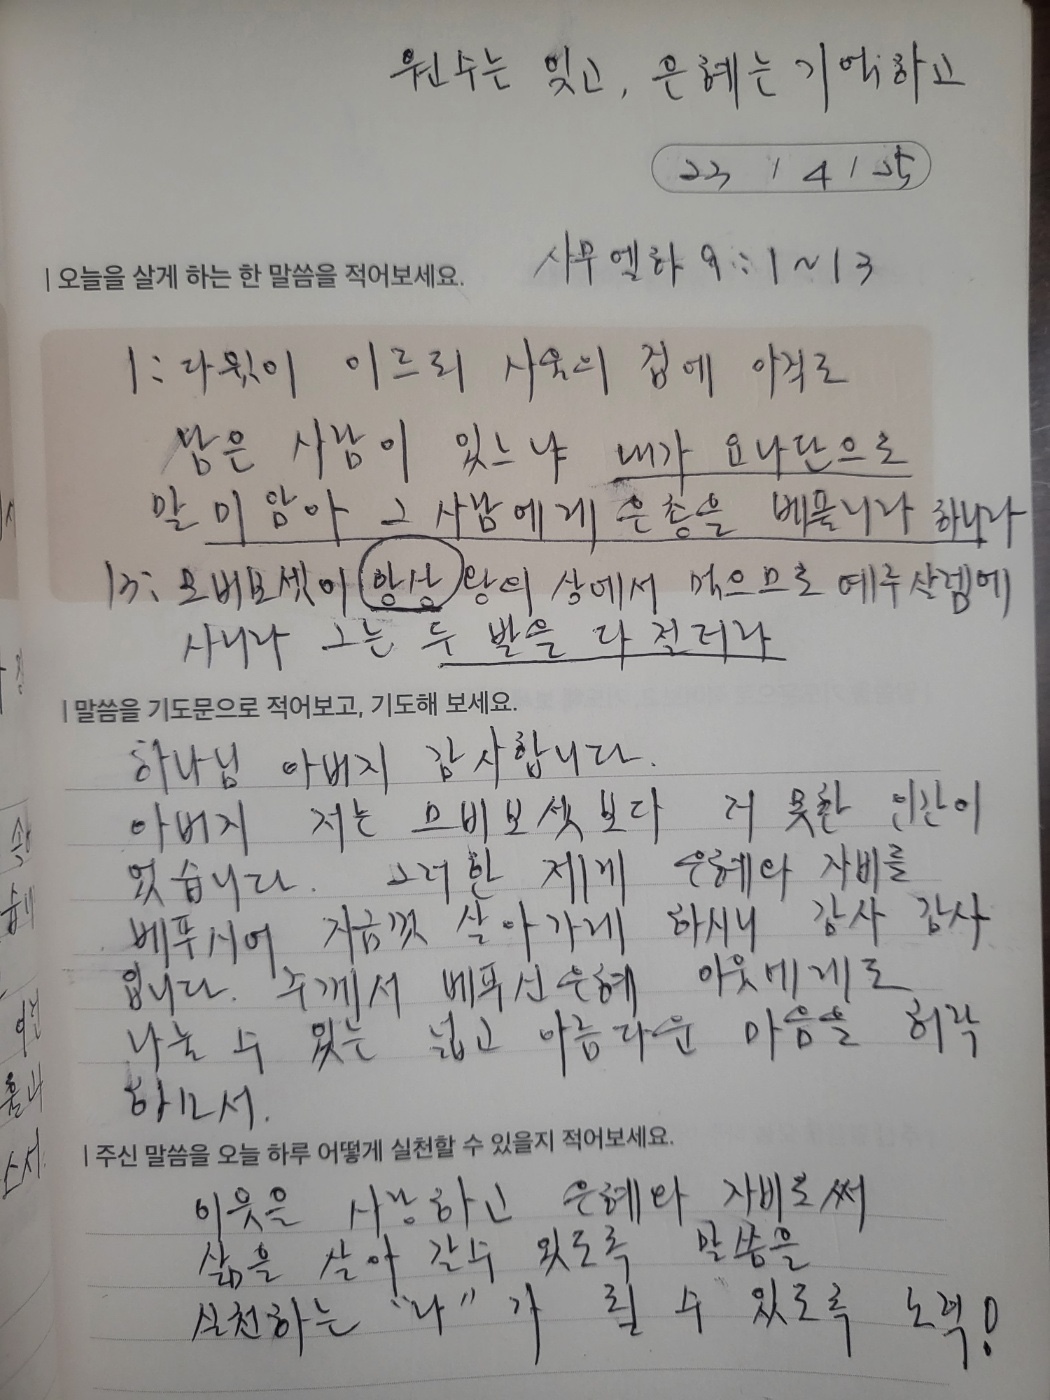 원수는 잊고, 은혜는 기억하고
23 / 4 / 25
사무엘하 9:1~13
| 오늘을 살게 하는 한 말씀을 적어보세요.
1: 다윗이 이르되 사울의 집에 아직도
남은 사람이 있느냐 내가 요나단으로
말미암아 그 사람에게 은총을 베풀니라 하니라
13: 므비보셋이 항상 왕의 상에서 먹으므로 예루살렘에
사니라 그는 두 발을 다 절더라
| 말씀을 기도문으로 적어보고, 기도해 보세요.
하나님 아버지 감사합니다.
아버지 저는 므비보셋보다 더 못한 인간이
었습니다. 그러한 제게 은혜와 자비를
베푸시어 지금껏 살아가게 하시니 감사 감사
입니다. 주께서 베푸신 은혜 이웃에게도
나눌 수 있는 넓고 아름다운 마음을 허락
하소서.
| 주신 말씀을 오늘 하루 어떻게 실천할 수 있을지 적어보세요.
이웃을 사랑하고 은혜와 자비로써
삶을 살아 갈수 있도록 말씀을
실천하는 "나"가 될 수 있도록 노력!